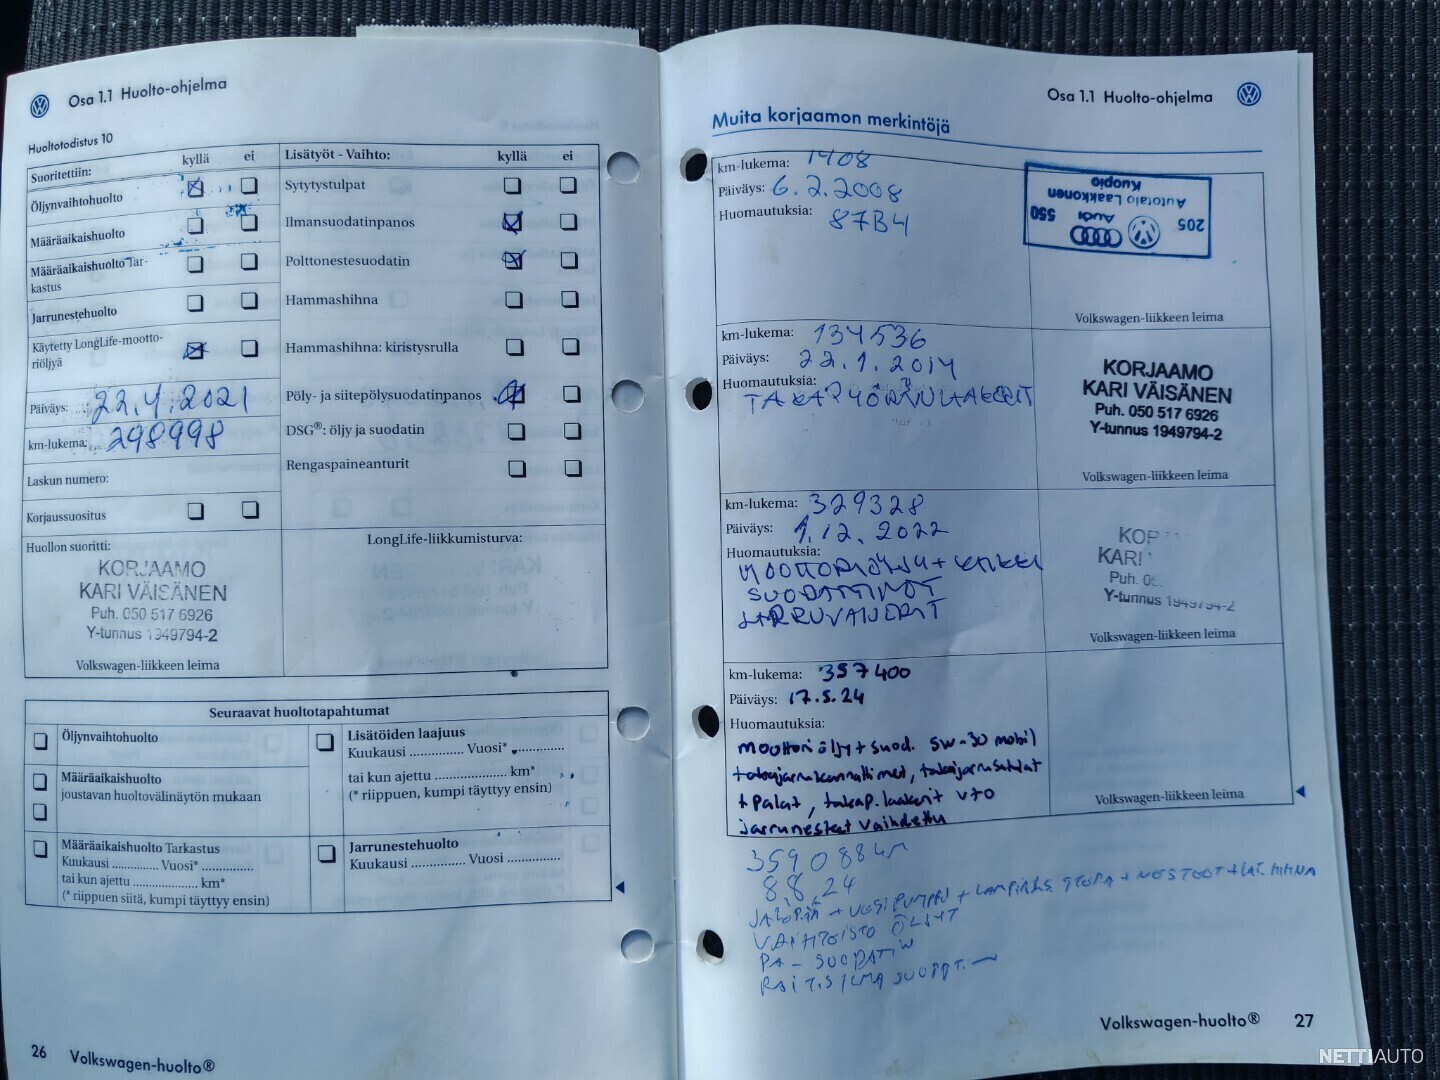 Osa 1.1 Huolto-ohjelma
Huoltotodistus 10
Suoritettiin:
kyllä ei
Öljynvaihtohuolto
Määräaikaishuolto
Määräaikaishuolto Tar-
kastus
Jarrunestehuolto
Käytetty LongLife-mootto-
riöljyä
Päiväys: 22.4.2021
km-lukema: 298998
Laskun numero:
Korjaussuositus
Lisätyöt - Vaihto: kyllä ei
Sytytystulpat
Ilmansuodatinpanos
Polttonestesuodatin
Hammashihna
Hammashihna: kiristysrulla
Pöly- ja siitepölysuodatinpanos
DSG®: öljy ja suodatin
Rengaspaineanturit
Huollon suoritti:
KORJAAMO
KARI VÄISÄNEN
Puh. 050 517 6926
Y-tunnus 1949794-2
Volkswagen-liikkeen leima
LongLife-liikkumisturva:
Seuraavat huoltotapahtumat
Öljynvaihtohuolto
Määräaikaishuolto
joustavan huoltovälinäytön mukaan
Määräaikaishuolto Tarkastus
Kuukausi ............. Vuosi* ..............
tai kun ajettu ................. km*
(* riippuen siitä, kumpi täyttyy ensin)
Lisätöiden laajuus
Kuukausi .............. Vuosi* ..............
tai kun ajettu ................... km*
(* riippuen, kumpi täyttyy ensin)
Jarrunestehuolto
Kuukausi .............. Vuosi ..............
26 Volkswagen-huolto®
Osa 1.1 Huolto-ohjelma
Muita korjaamon merkintöjä
km-lukema: 1408
Päiväys: 6.2.2008
Huomautuksia: 87B4
205 Audi 550
Autotalo Laakkonen
Kuopio
Volkswagen-liikkeen leima
km-lukema: 134536
Päiväys: 22.1.2014
Huomautuksia:
TAKAPYÖRÄNLAAKERIT
KORJAAMO
KARI VÄISÄNEN
Puh. 050 517 6926
Y-tunnus 1949794-2
Volkswagen-liikkeen leima
km-lukema: 329328
Päiväys: 1.12.2022
Huomautuksia:
MOOTTORIÖLJY + KAIKKI
SUODATTIMET
JARRUVAIJERIT
KOR
KARI
Puh. 05
Y-tunnus 1949794-2
Volkswagen-liikkeen leima
km-lukema: 357400
Päiväys: 17.5.24
Huomautuksia:
moottoriöljy + suod. 5w-30 mobil
takajarrusatulat
+ palat, takap. laakerit vto
jarrunesteet vaihdettu
Volkswagen-liikkeen leima
359088km
8.8.24
JAKOPÄÄ + VESIPUMPPU + + NESTEET + LAT. HIHNA
VAIHTEISTO ÖLJYT
PA - SUODATIN
RAITISILMA SUODATIN
Volkswagen-huolto® 27
NETTIAUTO